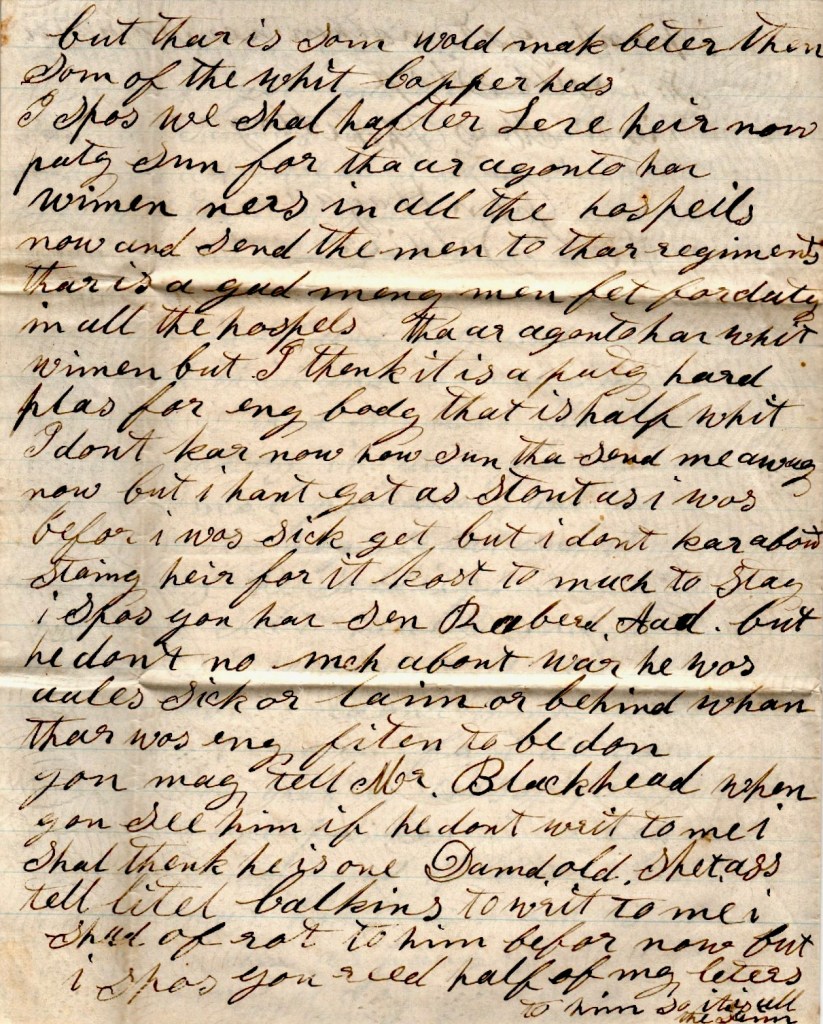 but thar is som wold mak beter then
som of the whit Copper heds
I spos we shal hafter Leve heir now
puty sun for tha ar agonto hav
wimen ners in all the hospeils
now and send the men to thar regiments
thar is a gud meny men fet for duty
in all the hospels tha ar agonto hav whit
wimen but I thenk it is a puty hard
plas for eny body that is half whit
I dont kar now how sun tha send me away
now but i hant got as stout as i was
befor i was sick yet but i dont kar about
staing heir for it kost to much to stay
i spos you hav sen but
he don't no mch about war he was
aules sick or laim or behind whan
thar was eny fiten to be don
you may tell Mr. Blackhead when
you see him if he dont writ to me i
shal thenk he is one Damd old. shet ass
tell litel Calkins to writ to me i
shud of rot to him befor now but
i spos you reed half of my leters
to him so it is all
the saim